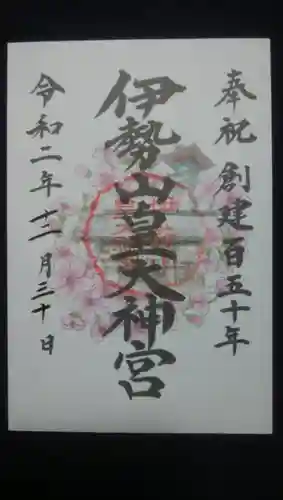 奉祝 創建百五十年
伊勢山皇大神宮
令和二年十二月三十日